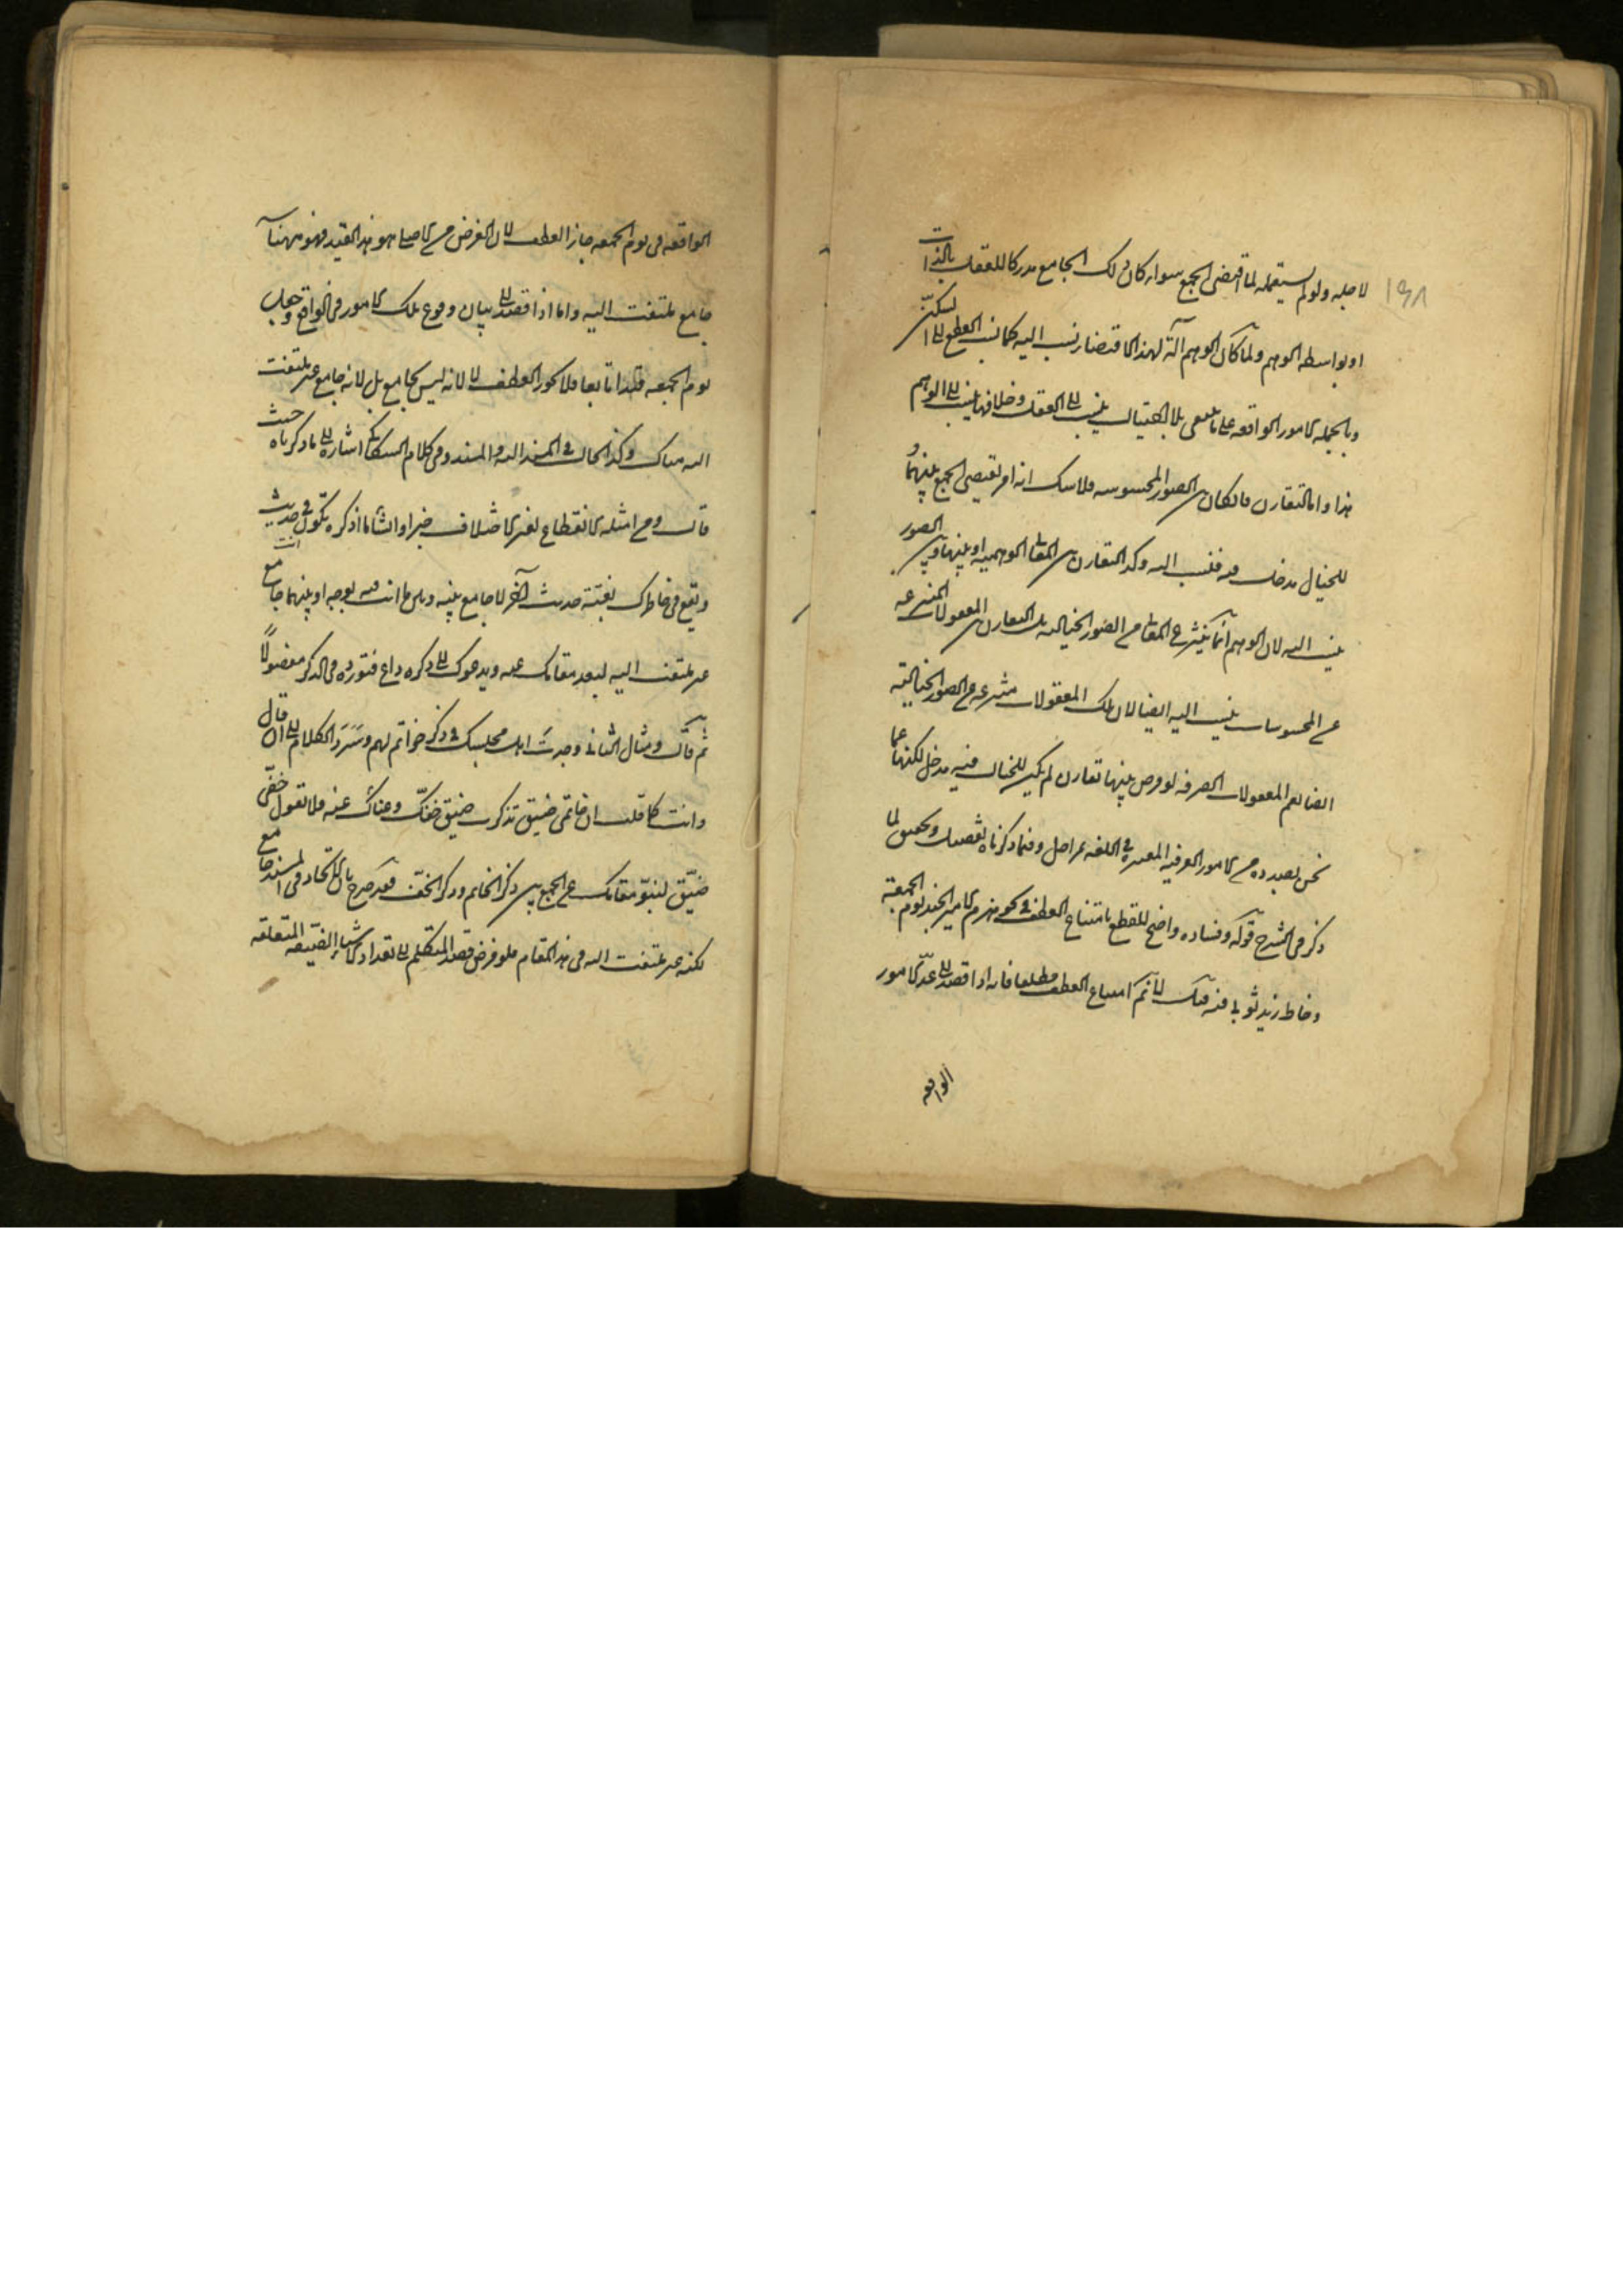 ١٣٨
لاجله ولو لم يستعمله لما اقتضى الجمع سواء كان ذلك الجامع مدركا للعقل بالذات
او بواسطة الوهم ولما كان الوهم آلة لهذا الاقتضاء نسب اليه كما نسب القطع الى السكين
وبالجملة الامور الواقعة على ما ينبغى بلا احتيال ينسب الى العقل وخلافها ينسب الى الوهم
هذا واما التقارن فان كان بين الصور المحسوسة فلا شك انه امر يقتضى الجمع بينهما و
للخيال مدخل فيه فنسب اليه وكذا التقارن بين المعانى الوهمية او بينها وبين الصور
ينسب اليه لان الوهم انما ينتزع المعانى من الصور الخيالية بل التقارن بين المعقولات المنتزعة
عن المحسوسات ينسب اليه ايضا لان تلك المعقولات منتزعة من الصور الخيالية
ايضا نعم المعقولات الصرفة لو فرض بينها تقارن لم يكن للخيال فيه مدخل لكنها عما
نحن بصدده من الامور العرفية المعتبرة فى اللغة بمراحل وفيما ذكرناه تفصيل وتحقيق لما
ذكر فى الشرح قوله وفساده واضح للقطع بامتناع العطف فى نحو هزم الامير الجند يوم الجمعة
وخاط زيد ثوبى فيه قيل لا نم امتناع العطف مطلقا فانه اذا قصد الى عد الامور
الواقعة
الواقعة فى يوم الجمعة جاز العطف لان الغرض الاصلى هو هذا القيد فهو ههنا
جامع ملتفت اليه واما اذا قصد الى بيان وقوع تلك الامور فى الواقع وجعل
يوم الجمعة قيدا تابعا فلا يجوز العطف لا لانه ليس بجامع بل لانه جامع غير ملتفت
اليه هناك وكذا الحال فى المسند اليه والمسند وفى كلام السكاكى اشارة الى ما ذكرناه حيث
قال ومن امثلة الانقطاع لغير الاختلاف خبرا وانشاء ما اذكره تكون فى حديث
ويقع فى خاطرك بغتة حديث آخر لا جامع بينه وبين ما انت فيه بوجه او بينهما جامع
غير ملتفت اليه لبعد مقامك عنه ويدعوك الى ذكره داع فتورده فى الذكر مفصولا
ثم قال ومثال الثانى وجدت اهل مجلسك فى ذكر خواتم لهم وسرد الكلام الى ان قال
وانت كما قلت ان خاتمى ضيق تذكرت ضيق خفك وعناك عنه فلا تقول خفى
ضيق لنبو مقامك عن الجمع بين ذكر الخاتم وذكر الخف فقد صرح بان الاتحاد فى المسند جامع
لكنه غير ملتفت اليه فى هذا المقام فلو فرض قصد المتكلم الى تعداد الاشياء الضيقة المتعلقة